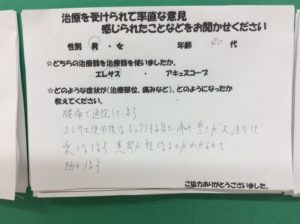 治療を受けられて率直な意見
感じられたことなどをお聞かせください
性別 男・女 年齢 40 代
☆どちらの治療器を治療器を使いましたか。
エレサス ・ アキュスコープ
☆どのような症状が(治療部位、痛みなど)、どのようになったか
教えてください。
腰痛で通院しています
エレサス使用後は
楽になります 患部が軽くなるのがわかるので
助かります
ご協力ありがとうございました。